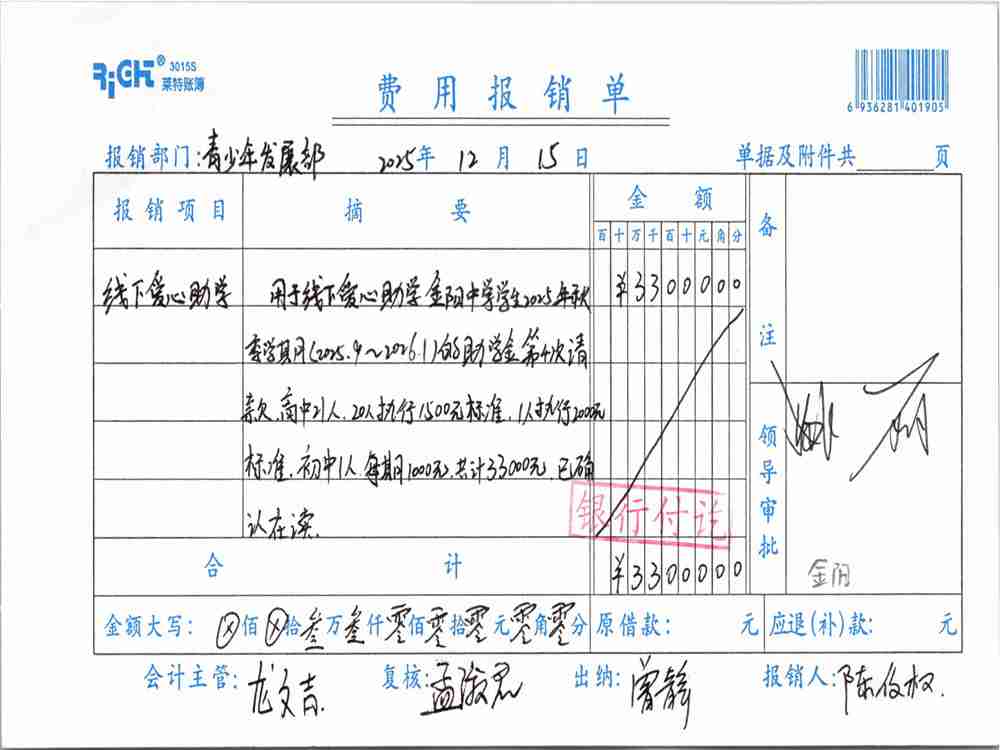 RiGHT® 3015S
莱特账簿
费用报销单
6 936281 401905
报销部门:青少年发展部 2025年 12月 15日 单据及附件共 页
报销项目 摘要 金额 备注
百十万千百十元角分
线下爱心助学 用于线下爱心助学金阳中学学生2025年秋 ¥3300000
季学期(2025.9~2026.1)的助学金第4次请
款,高中21人,20人执行1500元标准,1人执行2000元
标准,初中1人,每期1000元,共计33000元,已确
认在读.
银行付讫
领导审批
合计 ¥3300000
金阳
金额大写: ⊗佰⊗拾叁万叁仟零佰零拾零元零角零分 原借款: 元 应退(补)款: 元
会计主管:龙文吉. 复核:孟淑君 出纳:曾静 报销人:陈俊权.